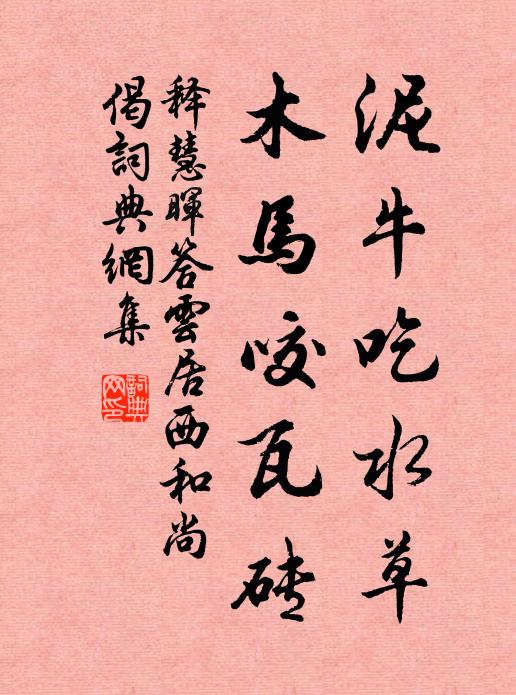 泥牛吃水草
木馬咬瓦砖
释慧暉答雲居西和尚
偈詞典網集
詞典网印